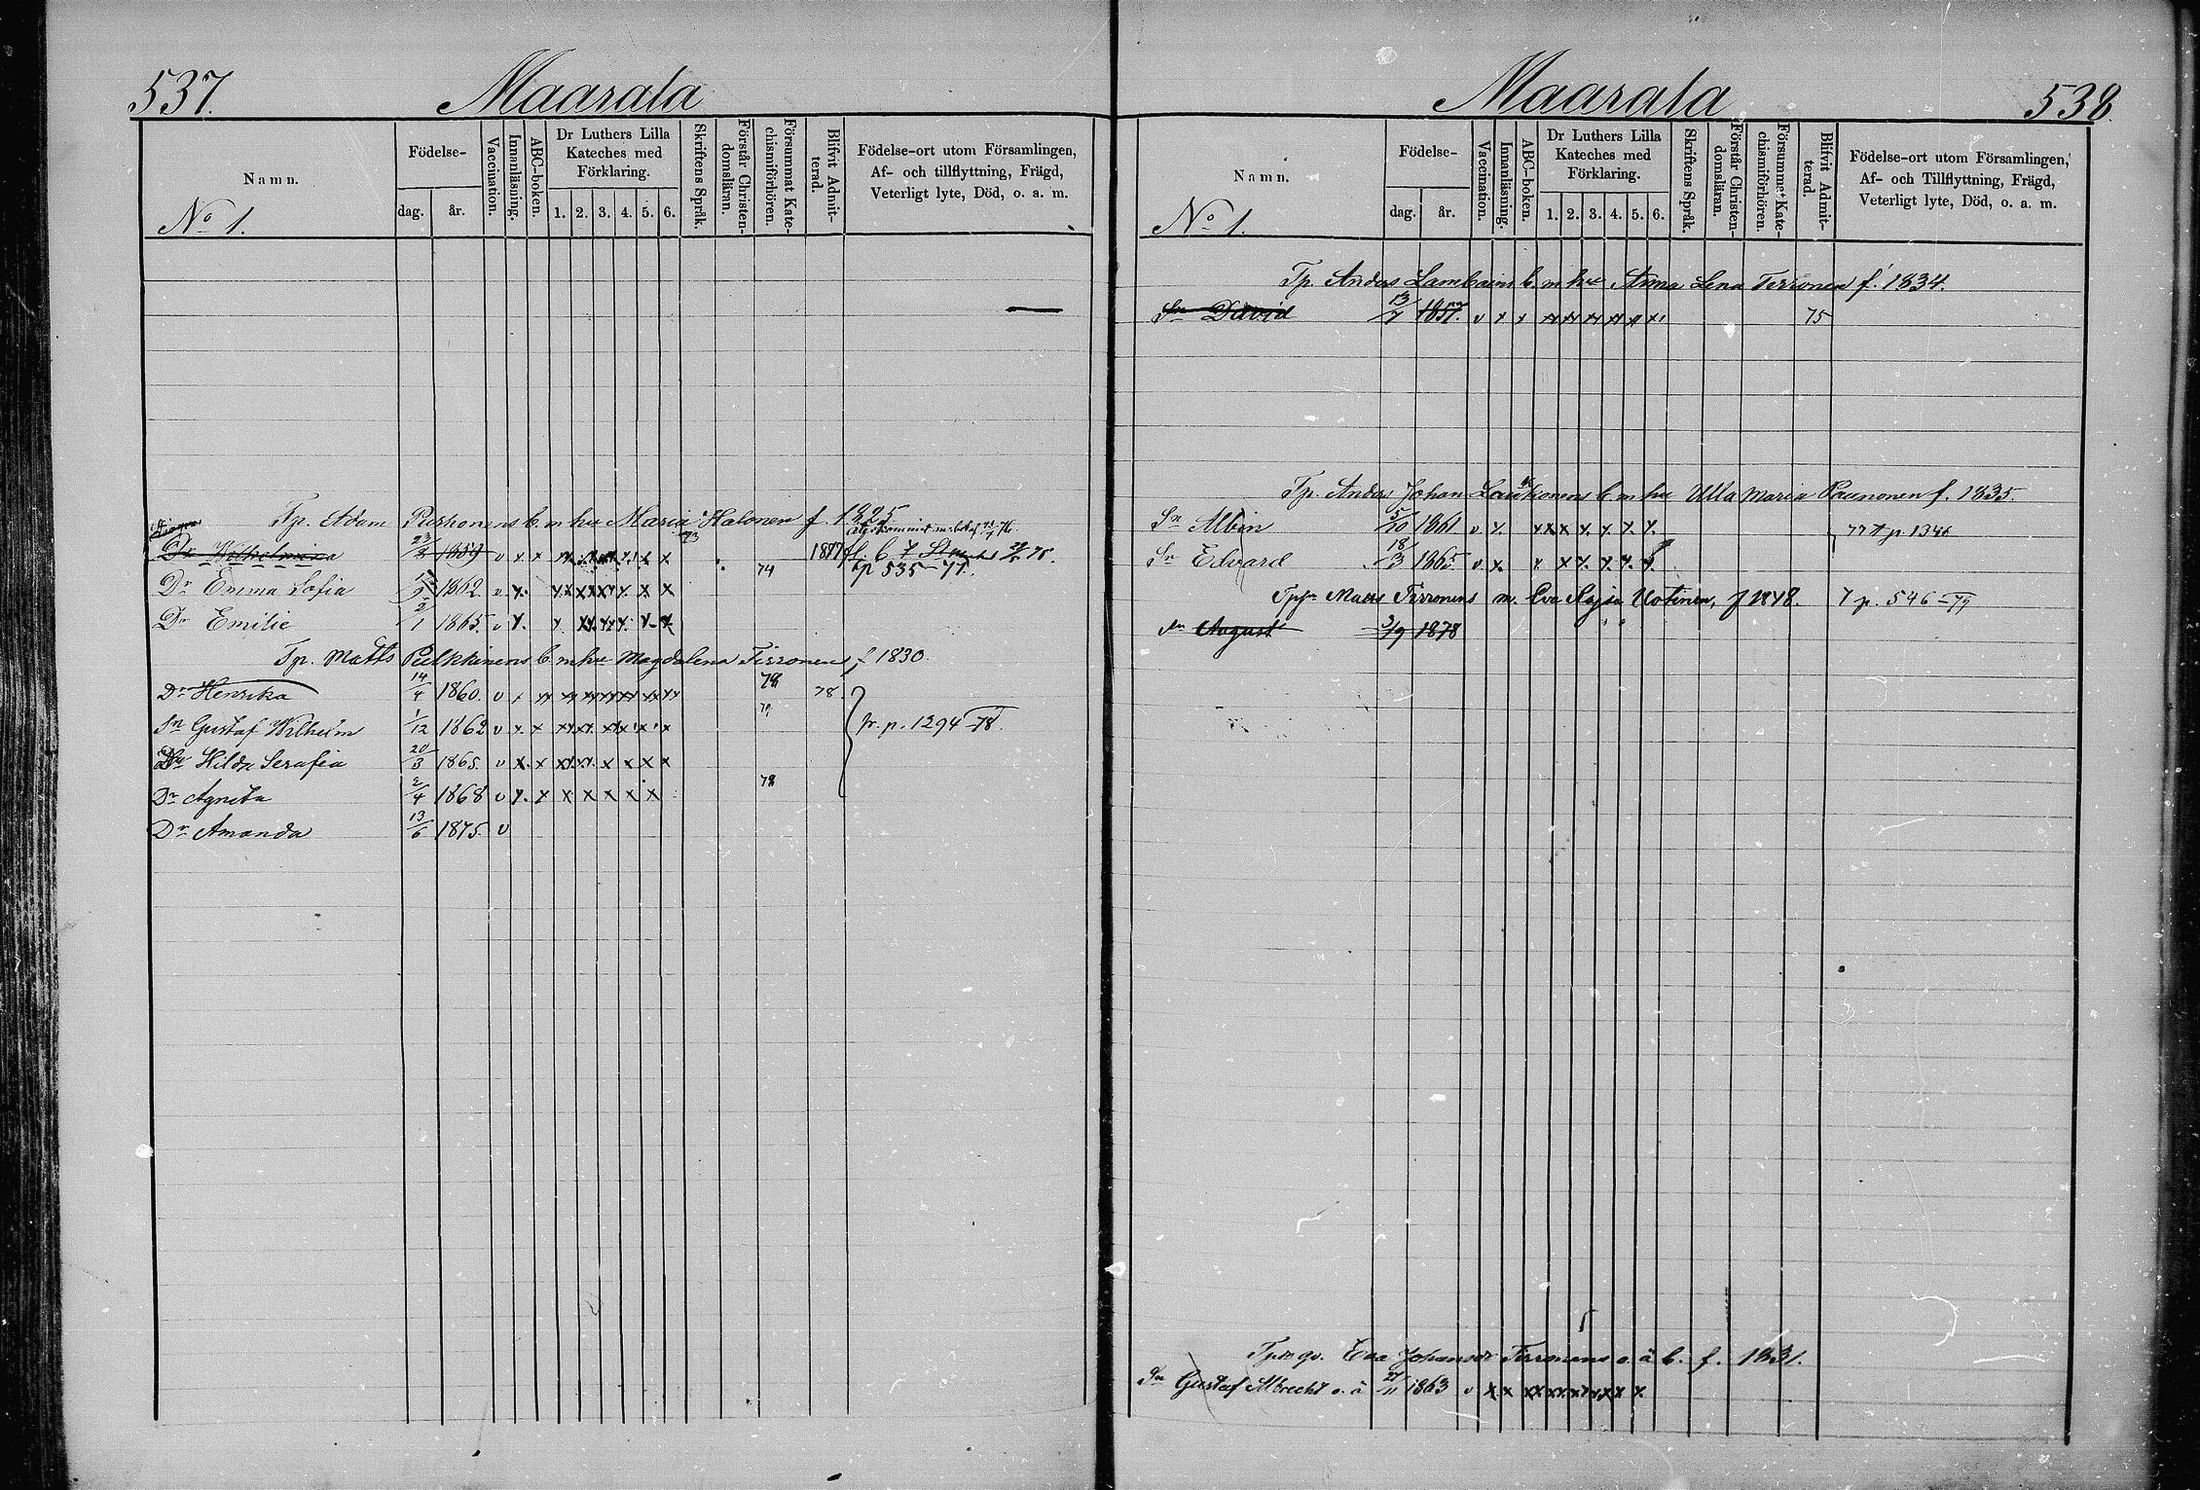 537. Maarala
Namn.
Födelse-
dag. år.
Vaccination.
Innanläsning.
ABC-boken.
Dr Luthers Lilla Kateches med Förklaring.
1. 2. 3. 4. 5. 6.
Skriftens Språk.
Förstår Christendomsläran.
Försummat Katechismiförhören.
Blifvit Admitterad.
Födelse-ort utom Församlingen,
Af- och tillflyttning, Frägd,
Veterligt lyte, Död, o. a. m.
No 1.
Tp. Adam Purhonens b. m hu Maria Halonen f. 1825
Dr Wilhelmina 23/3 1859 v x x 73 1877
p 535-77.
Dr Emma Sofia 1862 v x. 74
Dr Emilie 2/1 1865. v x.
Tp. Matts Pulkkinens b m hu Magdalena Tirronen f 1830.
Dr Henrika 14/4 1860. v x 78 78.
Sn Gustaf Wilhelm 1/12 1862 v x. x 79 tr. p. 1294-78.
Dr Hilda Serafia 20/3 1865. v x. x
Dr Agneta 2/4 1868 v x. x x x x x x 78
Dr Amanda 13/6 1875. v
Maarala 538.
Namn.
Födelse-
dag. år.
Vaccination.
Innanläsning.
ABC-boken.
Dr Luthers Lilla Kateches med Förklaring.
1. 2. 3. 4. 5. 6.
Skriftens Språk.
Förstår Christendomsläran.
Försummat Katechismiförhören.
Blifvit Admitterad.
Födelse-ort utom Församlingen,
Af- och Tillflyttning, Frägd,
Veterligt lyte, Död, o. a. m.
No 1.
Tp Anders b. m hu Anna Lena Tirronen f. 1834.
Sn David 13/7 1857. v x x 75
Tp. Anders Johan b. m hu Ulla Maria Paunonen f. 1835.
Sn Albin 5/10 1861 v x. 77 p 1346
Sn Edvard 18/3 1865. v x.
Matts Tirronens m. Eva Kajsa Uotinen, f 1848. T p. 546-79
Sn August 3/9 1878
Eva Johansdr Tirronens o. ä b. f. 1831.
Sn Gustaf Albrecht o. ä 1863 v x x